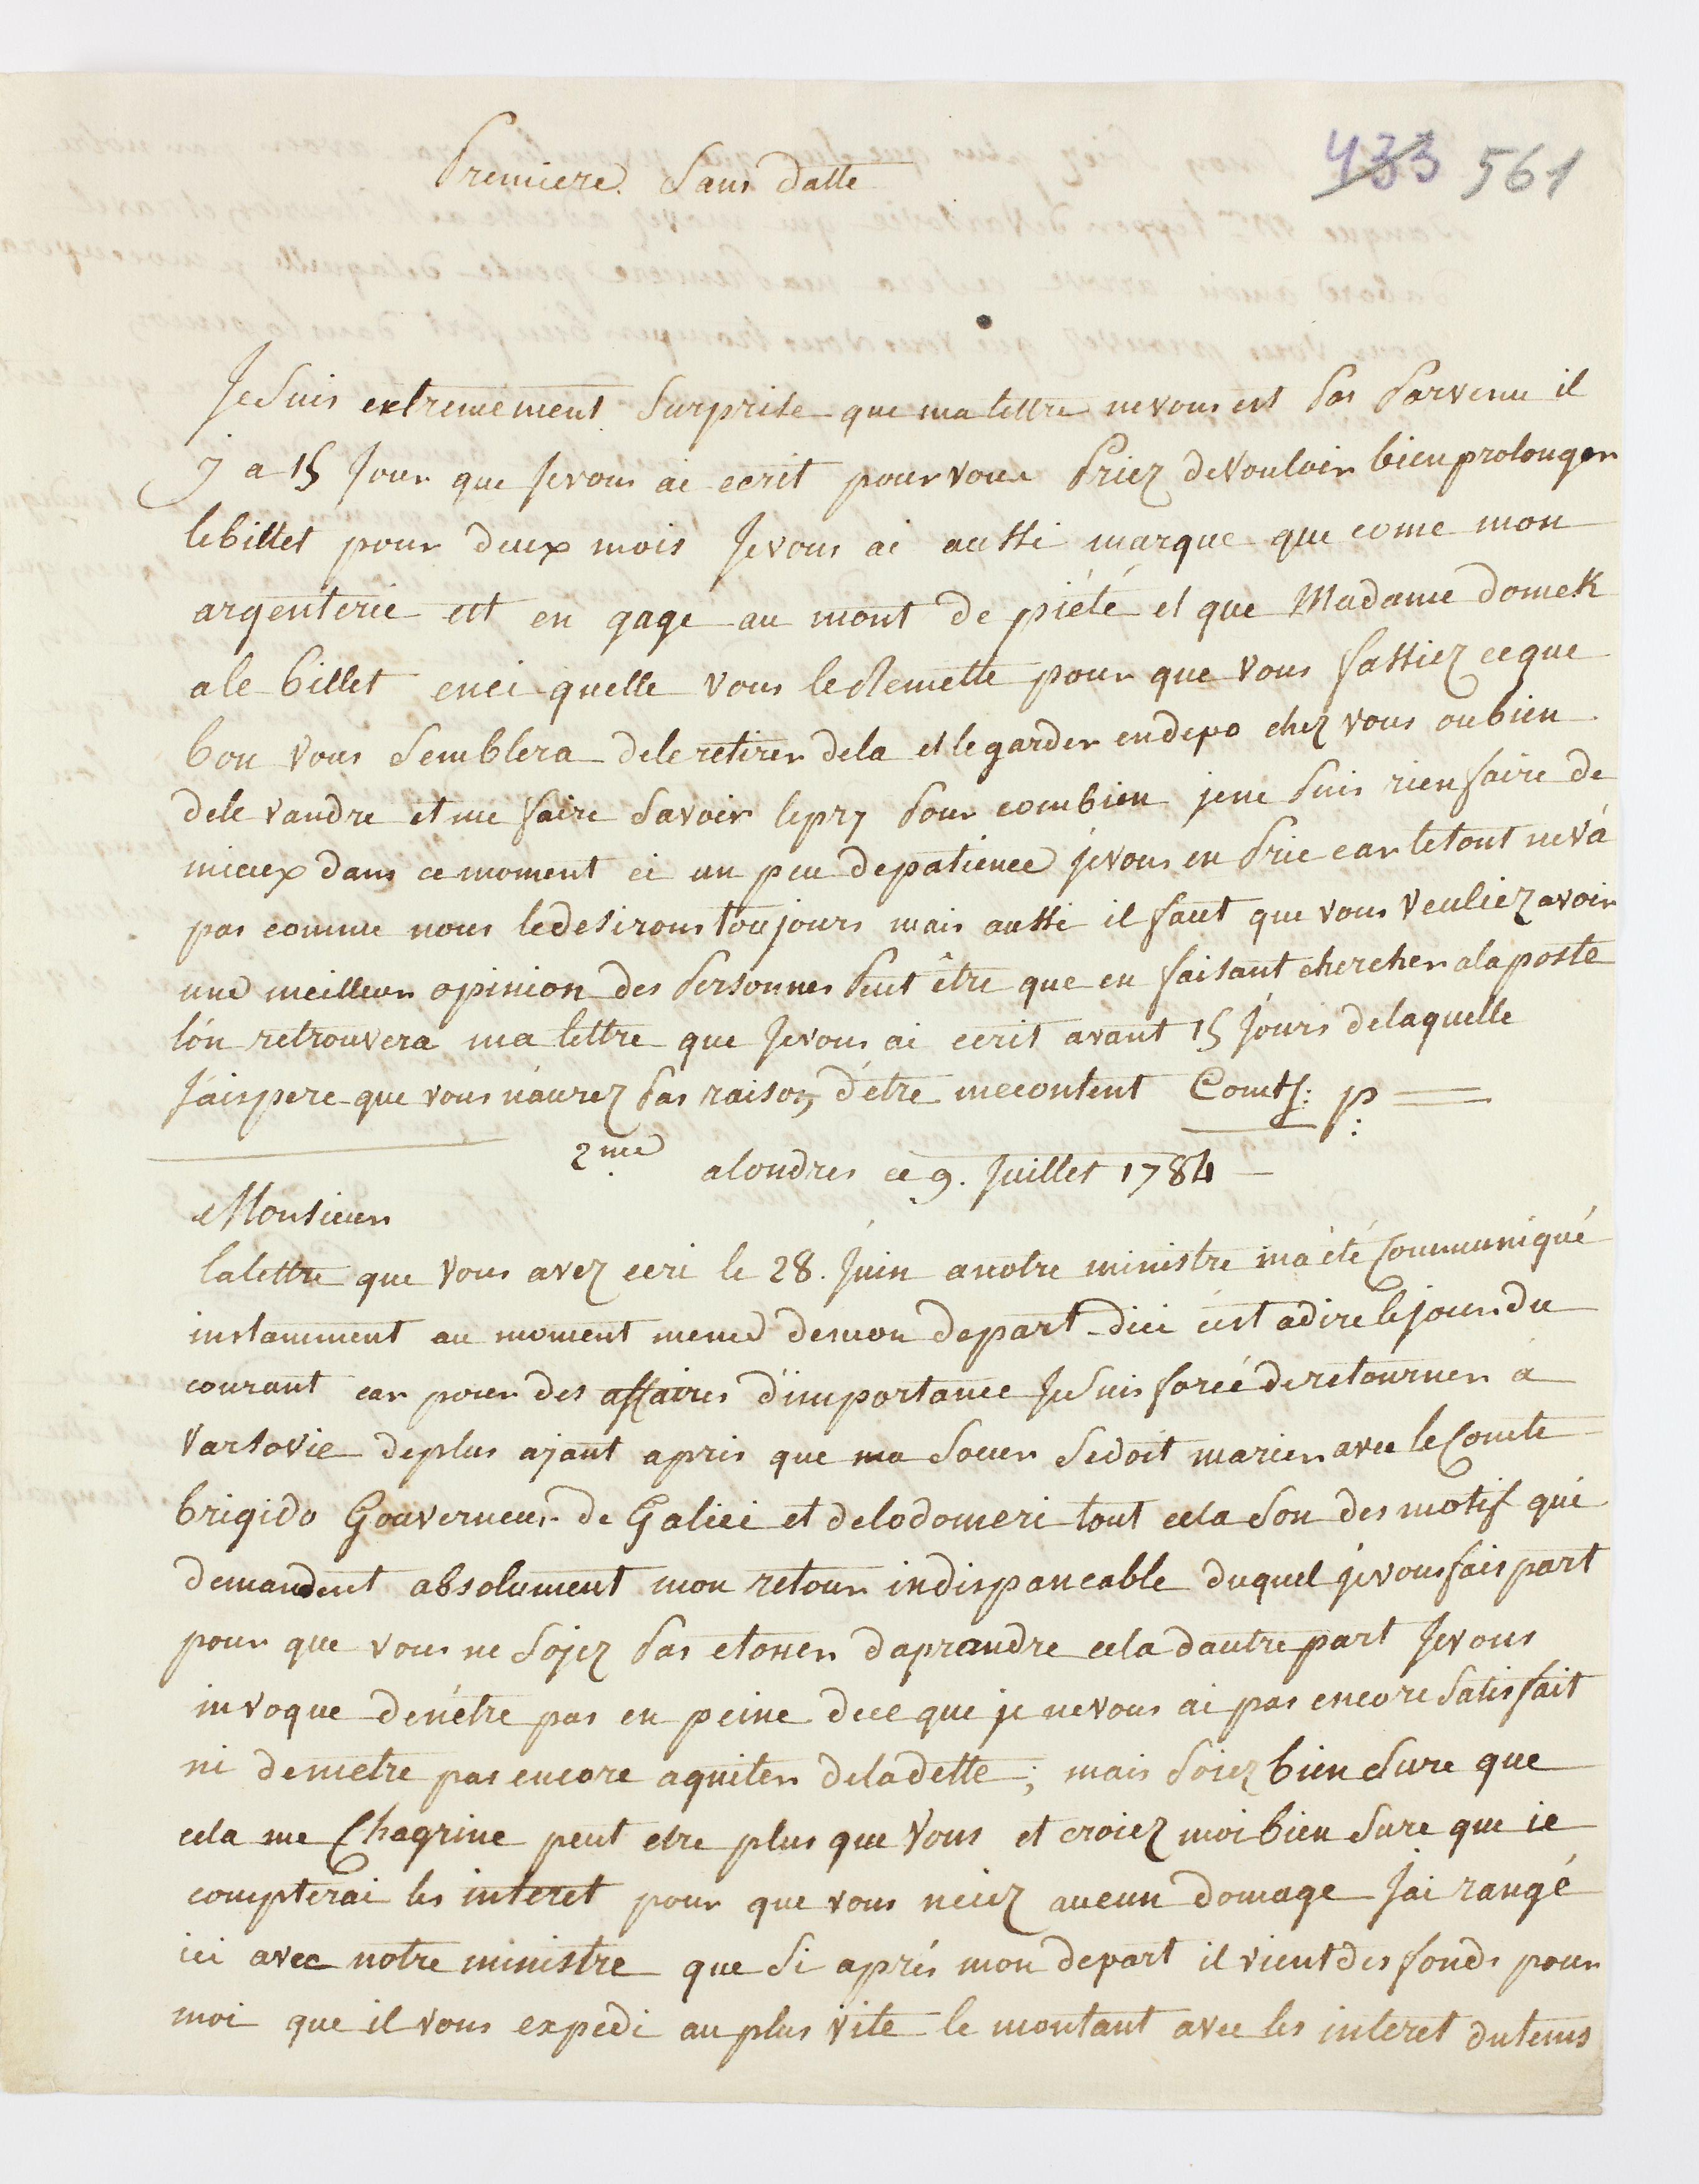 Premiere Sans datte
433 561
Je suis extremement Surprise que ma lettre ne vous est Pas Parvenu il
y a 15 Jour que Je vous ai ecrit pour vous Priez de Vouloir bien prolonger
le billet pour deux mois Je vous ai aussi marque que come mon
argenterie est en gage au mont de piété et que Madame Domek
a le billet enci quelle vous le Remette pour que vous fassiez ce que
bon vous Semblera de le retirer de la et le garder en depo chez vous ou bien
de le vandre et me faire Savoir le pry Pour combien je ne Puis rien faire de
mieux dans ce moment ci un peu de patience je vous en Prie car le tout ne vá
pas comme nous le desirons toujours mais aussi il faut que vous Veuliez avoir
une meilleur opinion des Personnes Peut être que en faisant chercher a la poste
lón retrouvera ma lettre que Je vous ai ecrit avant 15 Jours de laquelle
J'aispere que vous n'aurez Pas raison d'étre mecontent Comts: p:
2me a londres ce 9. Juillet 1784
Monsieur
la lettre que vous avez ecri le 28. Juin a notre ministre m'a été Communiqué
instamment au moment meme de mon depart dici c'est a dire le jour du
courant car pour des affaires d'importance Je suis forcé de retourner a
Varsovie de plus ajant apris que ma Soeur se doit marier avec le Comte
brigido Gouverneur de Galici et de lodomeri tout cela Son des motif qui
demandent absolument mon retour indispancable duquel je vous fais part
pour que vous ne Sojez Pas etoner daprandre cela dautre part Je vous
invoque de n'étre pas en peine de ce que je ne vous ai pas encore Satisfait
ni de metre pas encore aquiter de la dette; mais Soiez bien Sure que
cela me Chagrine peut etre plus que Vous et croiez moi bien Sure que je
compterai les interet pour que vous neiez aucun domage J'ai rangé
ici avec notre ministre que Si aprés mon depart il vient des fonds pour
moi que il vous expedi au plus vite le montant avec les interet du tems